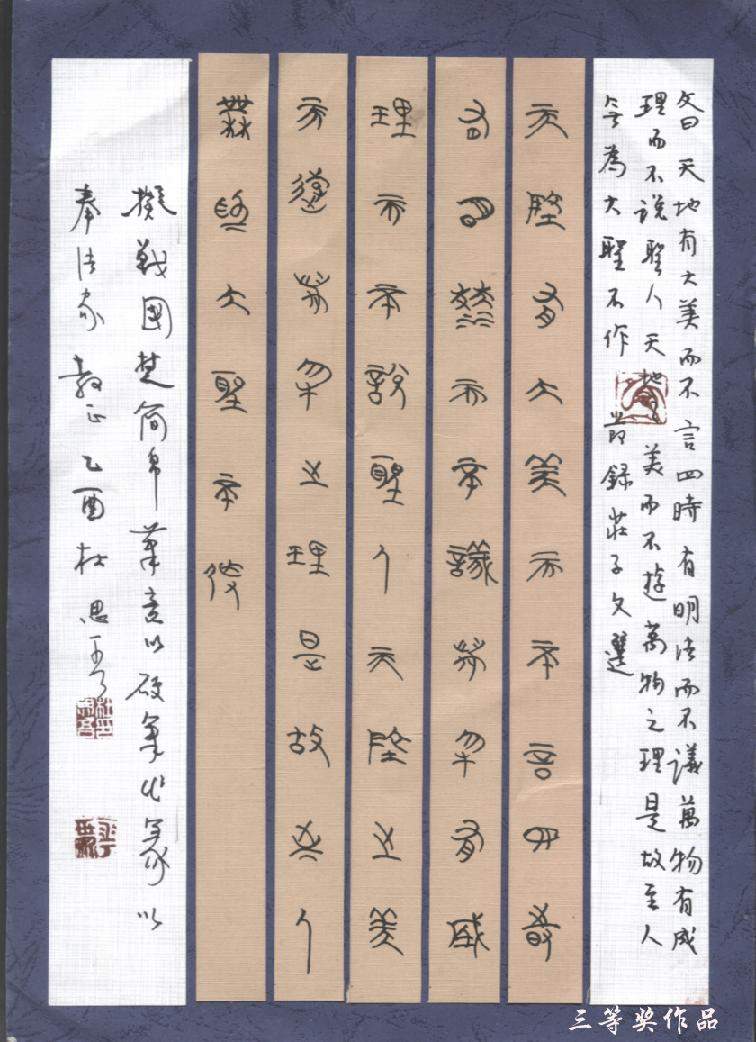 天地有大美而不言四時有明法而不議萬物有成
理而不說聖人天地之美而不萬物之理是故至人
無為大聖不作 節録莊子文選
天地有大美而不言四時
有明法而不議萬物有成
理而不說聖人天地之美
而達萬物之理是故至人
無為大聖不作
擬戰國楚簡帛筆意以硬筆作篆以
奉法家教正乙酉杜思
三等奖作品